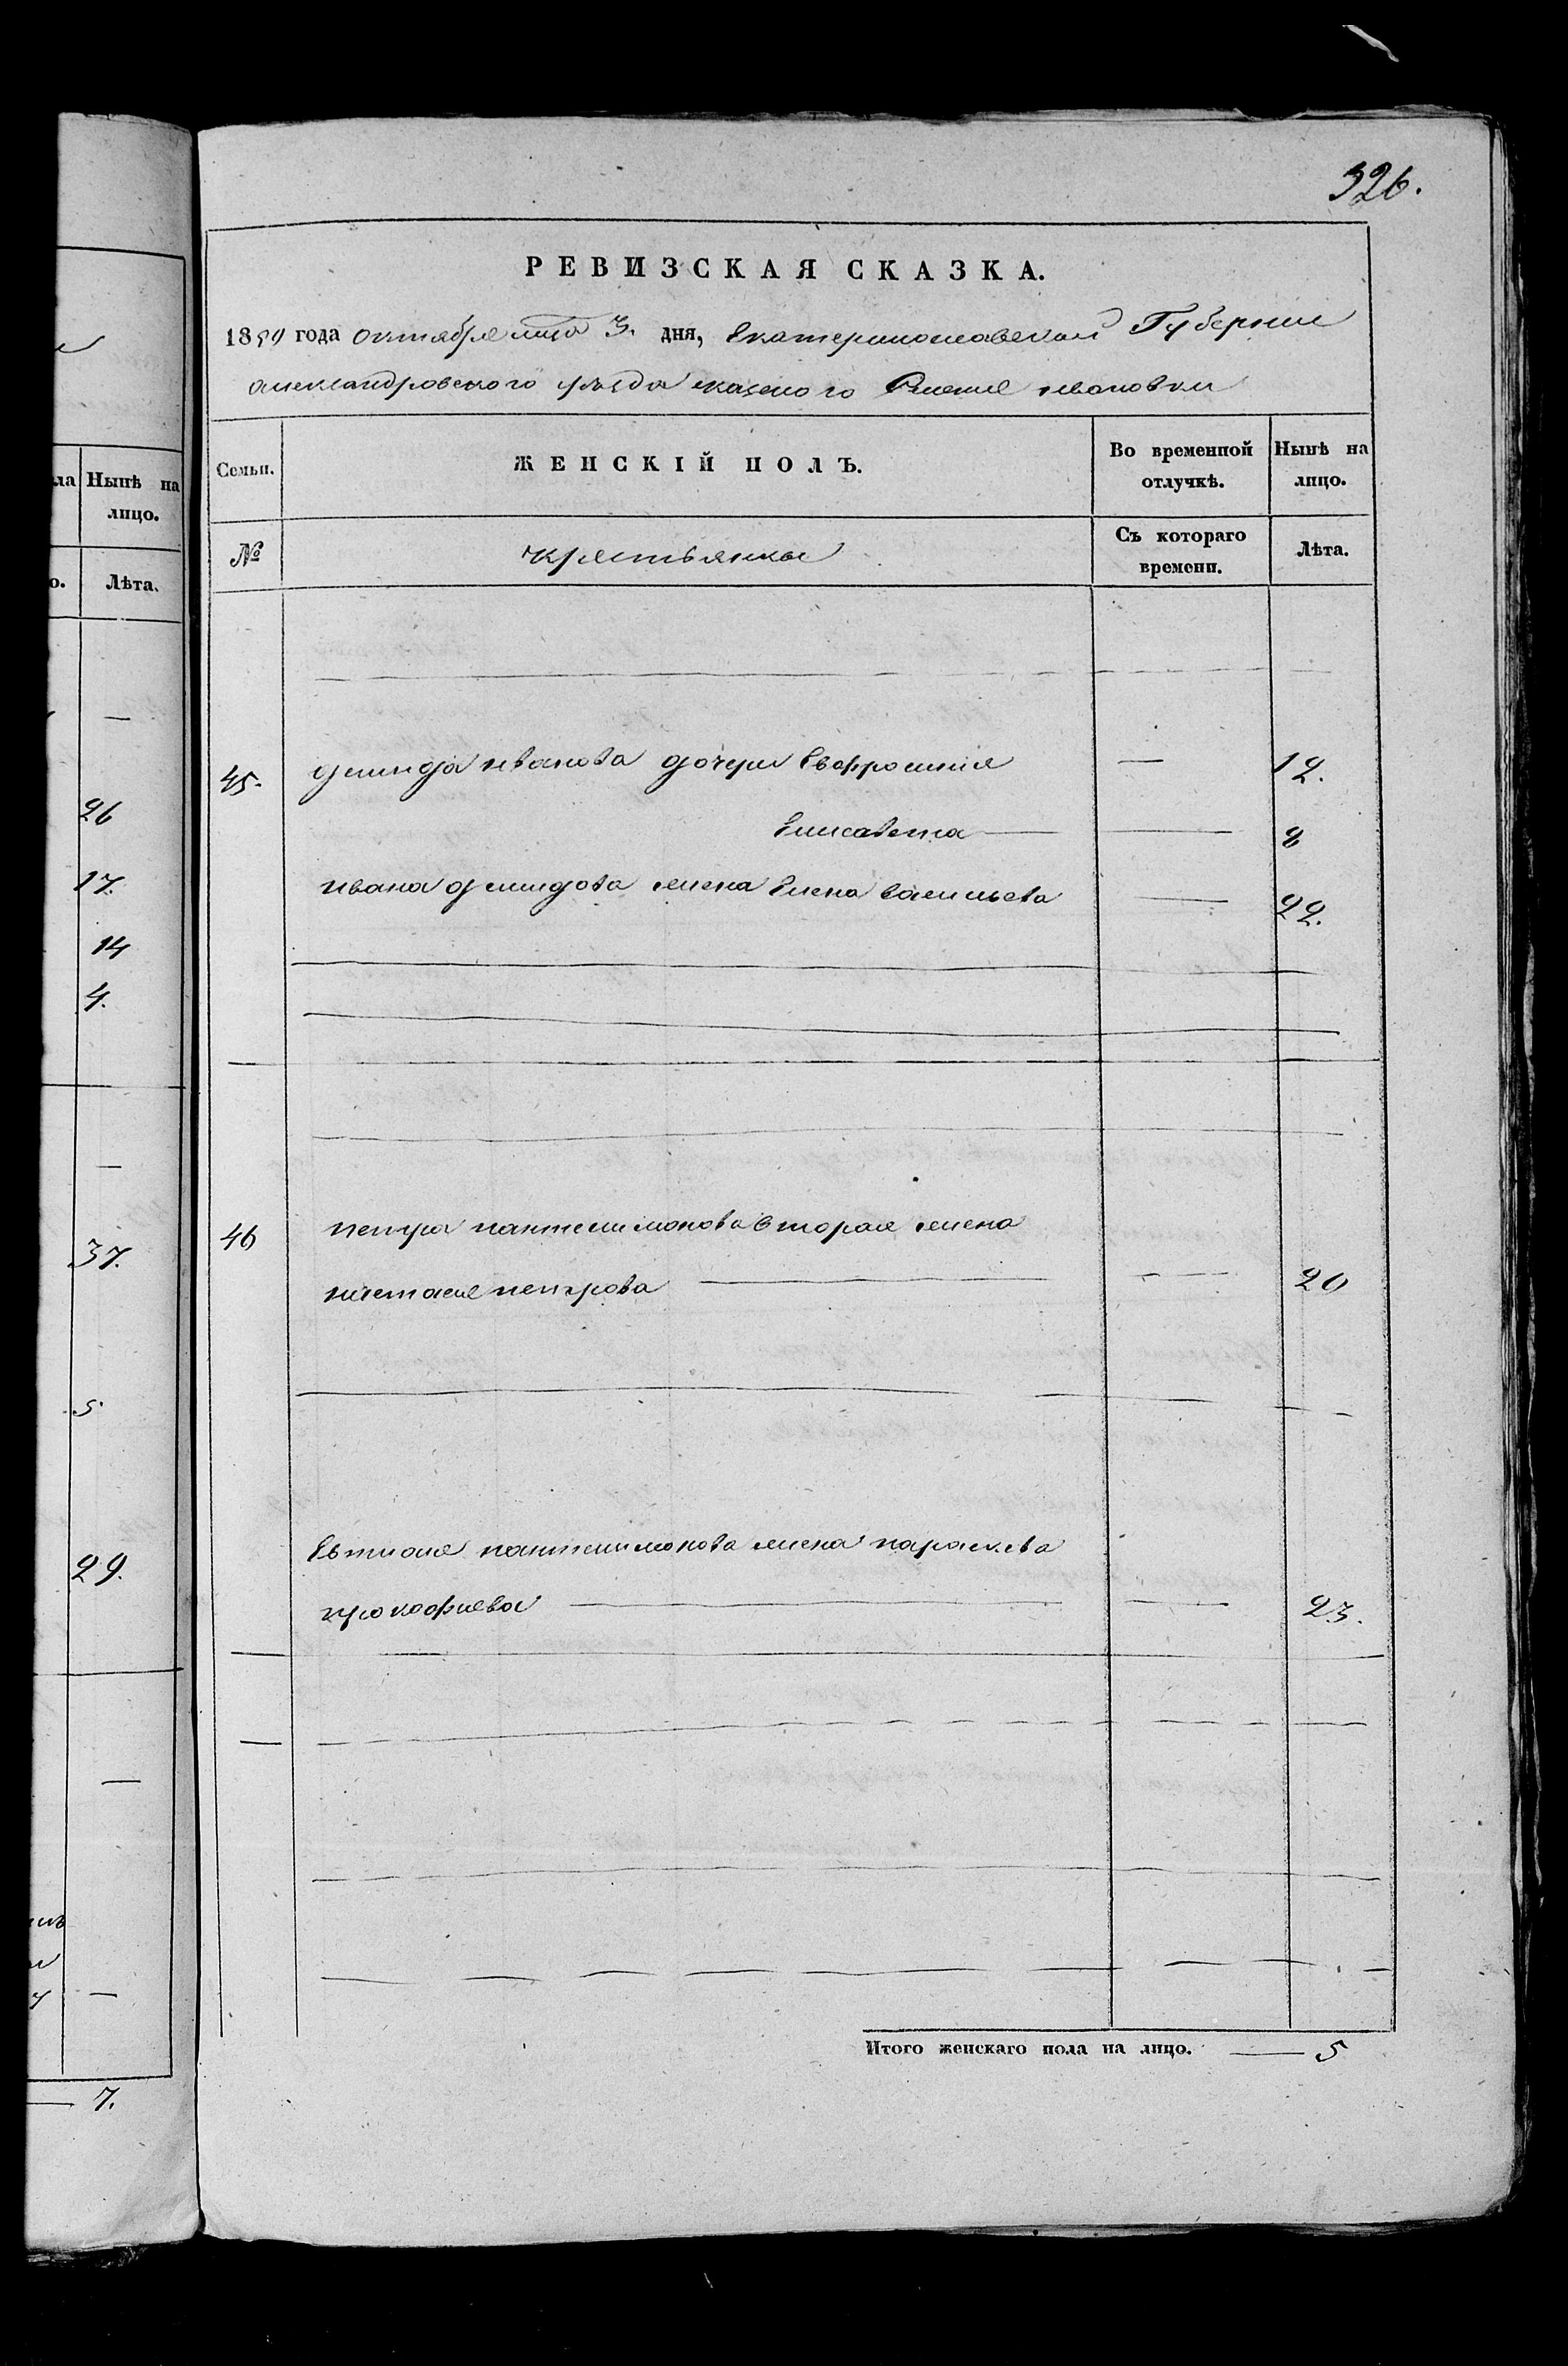 326.
РЕВИЗСКАЯ СКАЗКА.
1859 года октября мца 3. дня, Екатеринославской Губернии
александровского уъзда казеного Селения ивановки
Семьи.
ЖЕНСКІЙ ПОЛЪ.
Во временной отлучкѣ.
Нынѣ на лицо.
№
крестьянки
Съ котораго времени.
Лѣта.
45. демида иванова дочери Евфросиния — 12.
Елисавета — — 8
ивана демидова жена Елена васильева — 22.
46 петра пантелимонова вторая жена
настасия петрова — — 20
Евтифия пантелимонова жена параскева
прокофиева — — 23.
Итого женскаго пола на лицо. — 5
ла
Нынѣ на лицо.
о.
Лѣта.
—
26
17.
14
4.
—
37.
5
29.
—
—
— 7.